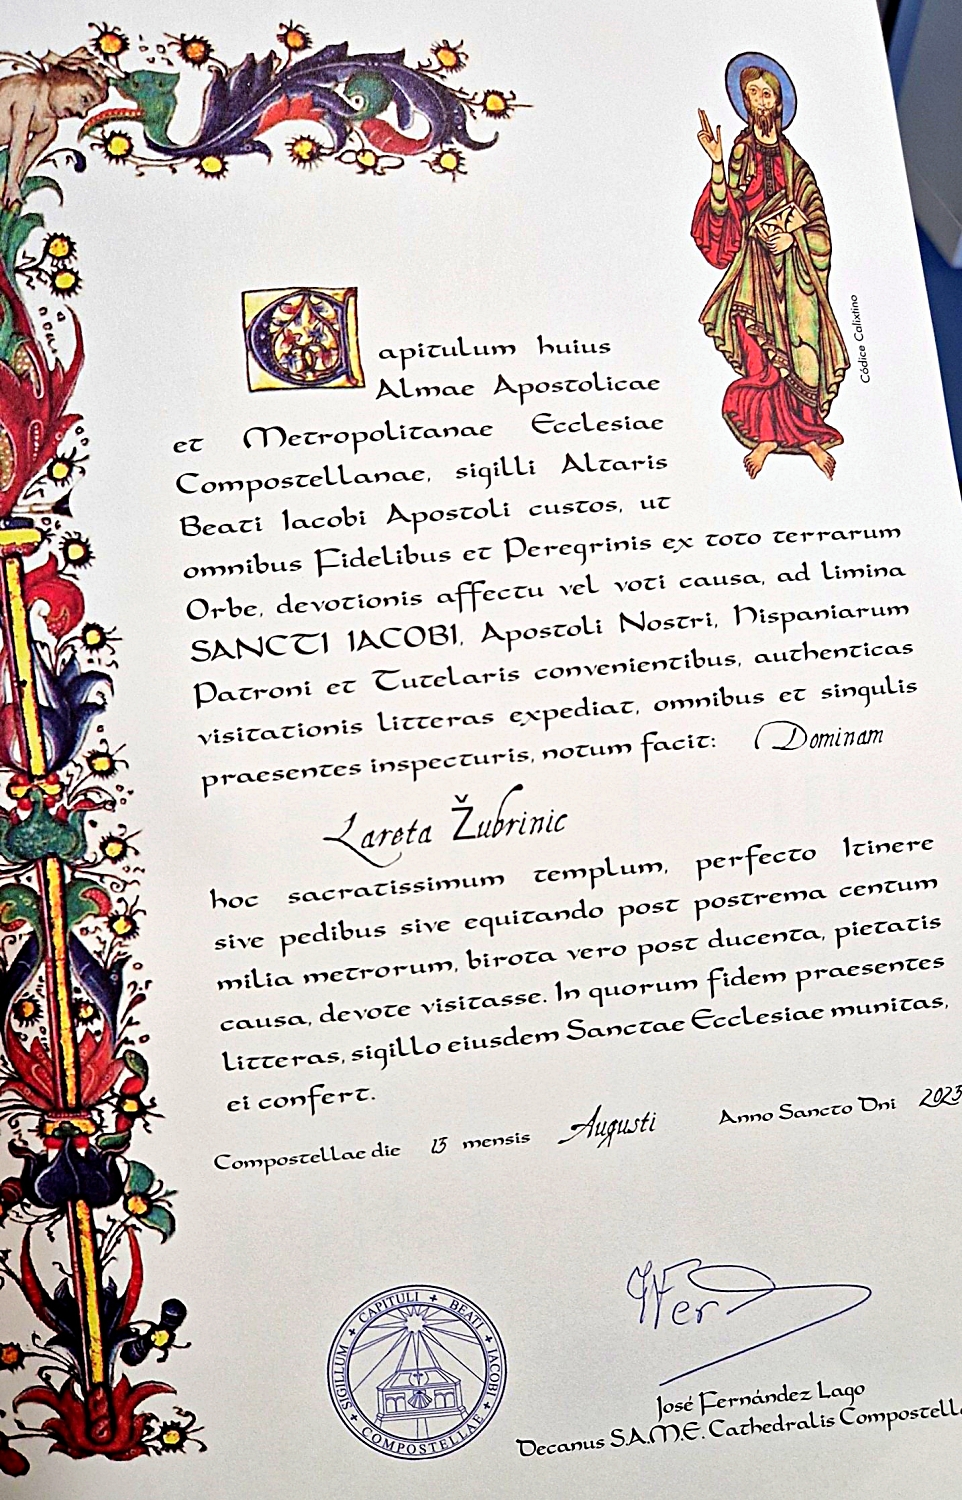 Códice Calixtino
Capitulum huius
Almae Apostolicae
et Metropolitanae Ecclesiae
Compostellanae, sigilli Altaris
Beati Iacobi Apostoli custos, ut
omnibus Fidelibus et Peregrinis ex toto terrarum
Orbe, devotionis affectu vel voti causa, ad limina
SANCTI IACOBI, Apostoli Nostri, Hispaniarum
Patroni et Tutelaris convenientibus, authenticas
visitationis litteras expediat, omnibus et singulis
praesentes inspecturis, notum facit: Dominam
Lareta Žubrinic
hoc sacratissimum templum, perfecto Itinere
sive pedibus sive equitando post postrema centum
milia metrorum, birota vero post ducenta, pietatis
causa, devote visitasse. In quorum fidem praesentes
litteras, sigillo eiusdem Sanctae Ecclesiae munitas,
ei confert.
Compostellae die 13 mensis Augusti Anno Sancto Dni 2023
SIGILLUM + CAPITULI + BEATI + IACOBI + COMPOSTELLAE +
José Fernández Lago
Decanus S.A.M.E. Cathedralis Compostell